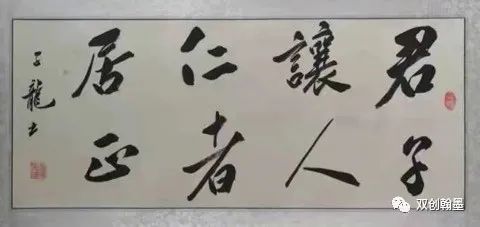 君子
讓人
仁者
居正
子龍书
双创翰墨